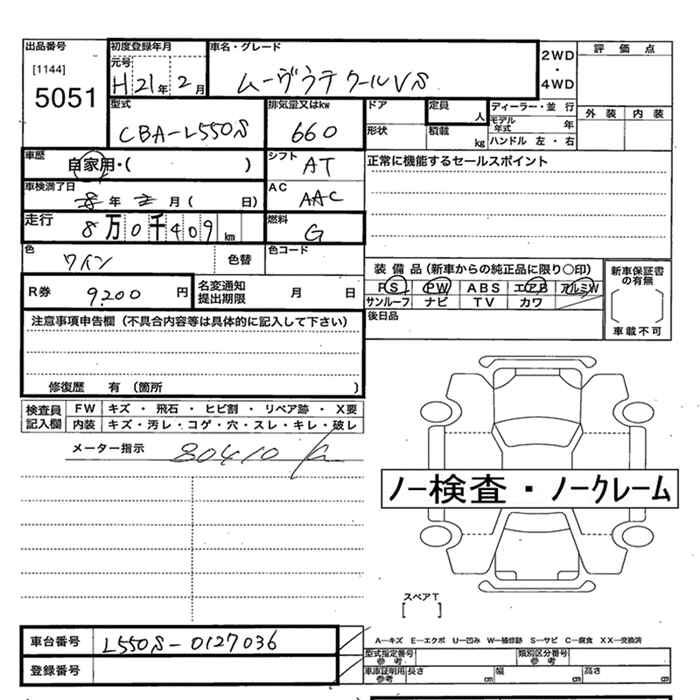 出品番号
[1144]
5051
初度登録年月
元号
H21年2月
車名・グレード
ムーヴラテ クールVS
2WD
・
4WD
評価点
外装 内装
型式
CBA-L550S
排気量又はkw
660
ドア
定員
人
形状
積載
kg
ディーラー・並行
モデル年式 年
ハンドル 左・右
車歴
自家用・( )
シフト
AT
正常に機能するセールスポイント
車検満了日
年 月( 日)
AC
AAC
走行
8万0千409km
燃料
G
色
ワイン
色替
色コード
装備品(新車からの純正品に限り○印)
PS PW ABS エアB アルミW
サンルーフ ナビ TV カワ
新車保証書の有無
車載不可
R券
9,200円
名変通知提出期限 月 日
後日品
注意事項申告欄(不具合内容等は具体的に記入して下さい)
修復歴 有(箇所 )
検査員記入欄
FW キズ・飛石・ヒビ割・リペア跡・X要
内装 キズ・汚レ・コゲ・穴・スレ・キレ・破レ
メーター指示
80410
ノー検査・ノークレーム
スペアT
[ ]
車台番号
L550S-0127036
登録番号
A―キズ E―エクボ U―凹み W―補修跡 S―サビ C―腐食 XX―交換済
型式指定番号 参考
類別区分番号 参考
車庫証明用 参考
長さ cm 幅 cm 高さ cm